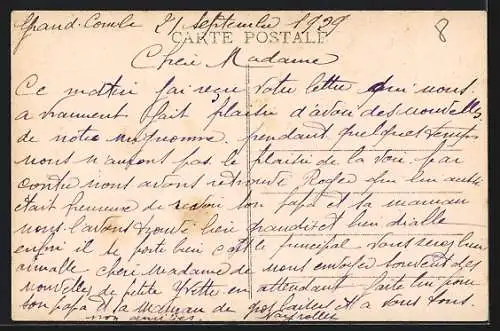 Grand-Combe 21 Septembre 1929
8
CARTE POSTALE
Chère Madame
Ce matin j'ai reçu votre lettre qui nous
a vraiment fait plaisir d'avoir des nouvelles
de notre mignonne pendant quelques temps
nous n'aurons pas le plaisir de la voir par
contre nous avons retrouvé Roger qui lui aussi
était heureux de revoir son papa et sa maman
nous l'avons trouvé bien grandi et bien
enfin il se porte bien c'est le principal vous serez bien
aimable chère Madame de nous envoyer souvent des
nouvelles de petite Yvette en attendant faite lui pour
son papa et sa maman de gros et a vous tous
nos amitiés